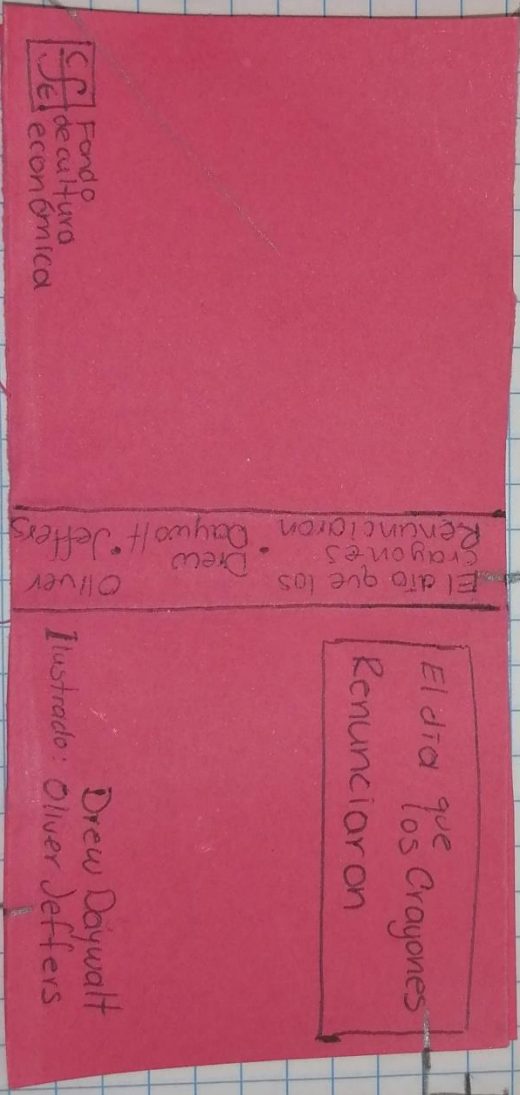 Fondo
de cultura
económica
El día que los
crayones
Renunciaron
Drew
Daywalt
Oliver
Jeffers
El día que
los Crayones
Renunciaron
Drew Daywalt
Ilustrado: Oliver Jeffers